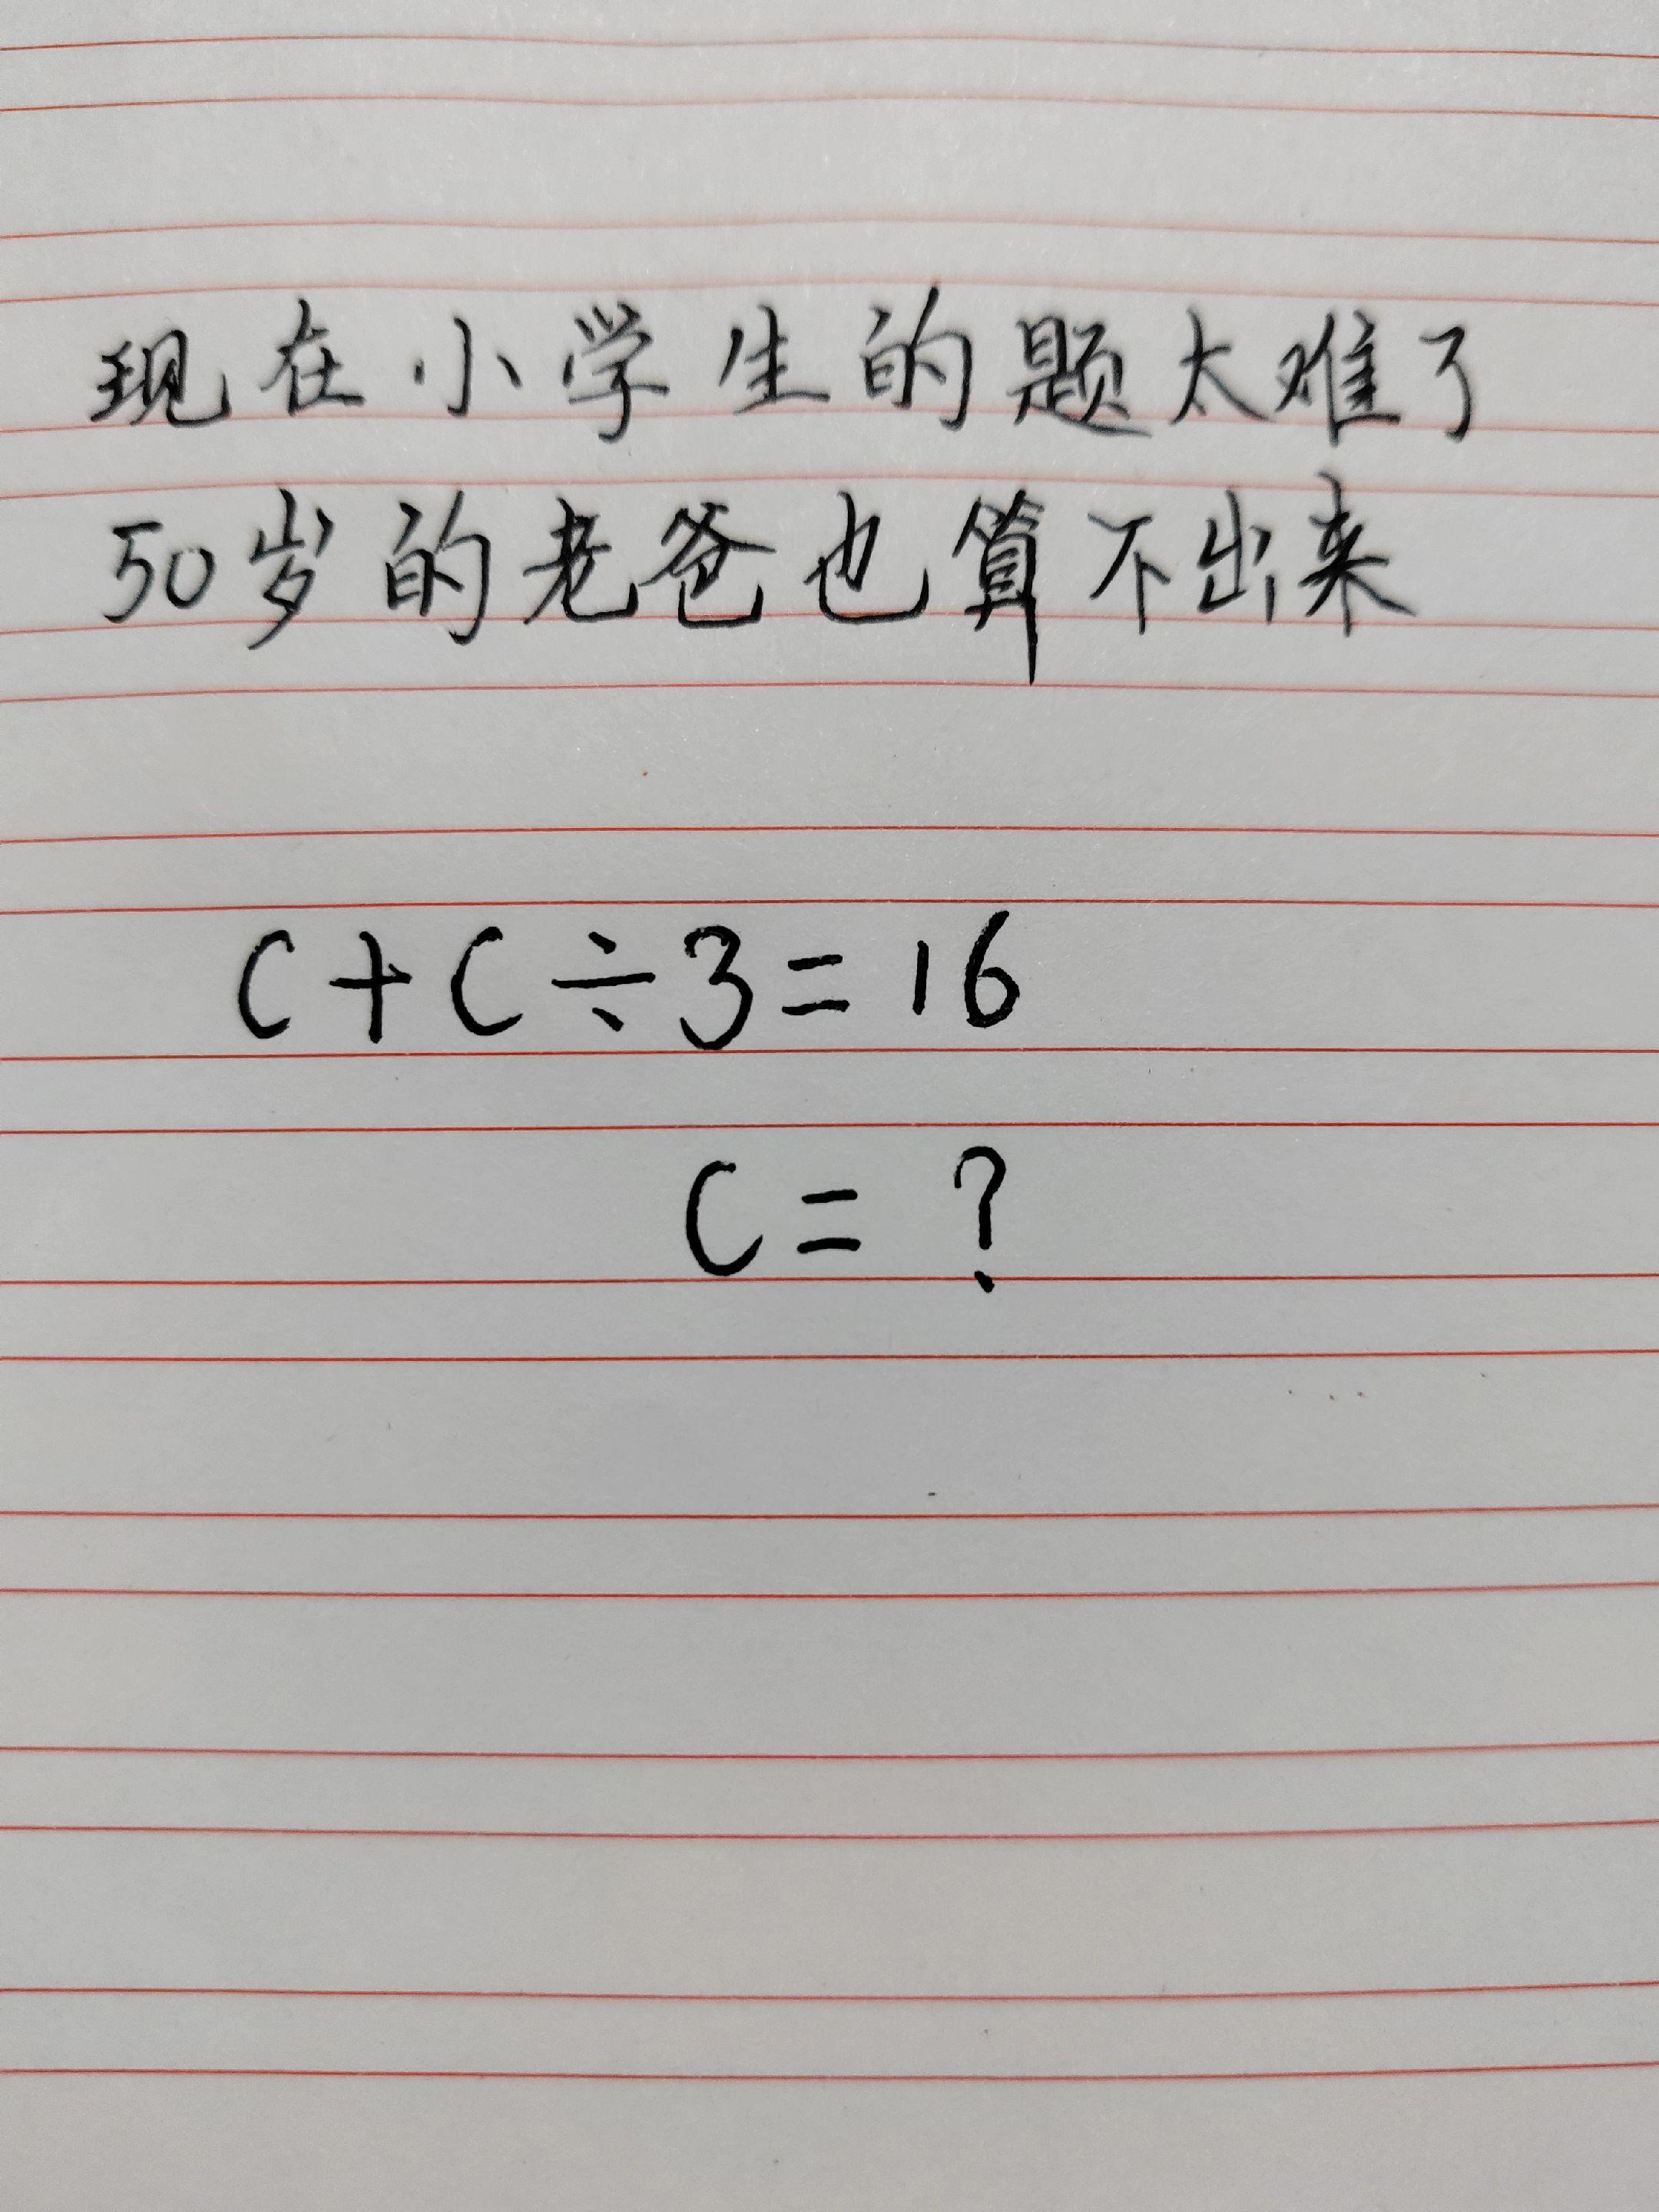 现在小学生的题太难了
50岁的老爸也算不出来
C+C÷3=16
C=?